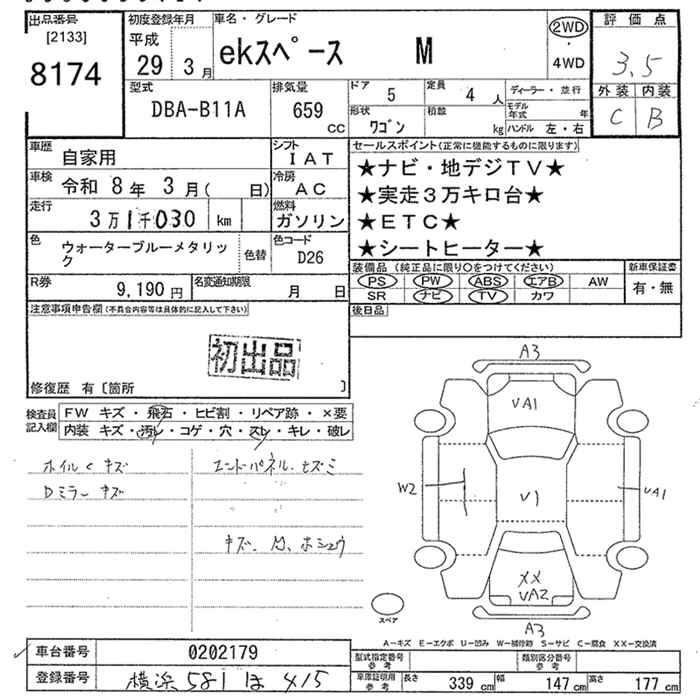 出品番号
[2133]
8174
初度登録年月
平成
29年3月
車名・グレード
ekスペース M
2WD
・
4WD
評価点
3.5
外装 内装
C B
型式
DBA-B11A
排気量
659
CC
ドア
5
定員
4人
ディーラー・並行
形状
ワゴン
積載
kg
モデル年式 年
ハンドル 左・右
車歴
自家用
シフト
IAT
車検
令和 8年 3月( 日)
冷房
AC
走行
3万1千030 km
燃料
ガソリン
色
ウォーターブルーメタリック
色替
色コード
D26
R券
9,190円
名変通知期限
月 日
セールスポイント(正常に機能するものに限ります)
★ナビ・地デジTV★
★実走3万キロ台★
★ETC★
★シートヒーター★
装備品(純正品に限り○をつけてください)
PS PW ABS エアB AW
SR ナビ TV カワ
新車保証書
有・無
後日品
注意事項申告欄(不具合内容等は具体的に記入して下さい)
初出品
修復歴 有〔箇所 〕
検査員記入欄
FW キズ・飛石・ヒビ割・リペア跡・×要
内装 キズ・汚レ・コゲ・穴・スレ・キレ・破レ
ホイルCキズ
Dミラーキズ
エンドパネル.ヒズミ
キズ、凹、ホシュウ
A3
UA1
W2
U1
UA1
XX
UA2
A3
スペア
A-キズ E-エクボ U-凹み W-補修跡 S-サビ C-腐食 XX-交換済
車台番号
0202179
登録番号
横浜 581 ほ 415
型式指定番号
参考
類別区分番号
参考
車庫証明用
参考
長さ 339cm 幅 147cm 高さ 177cm